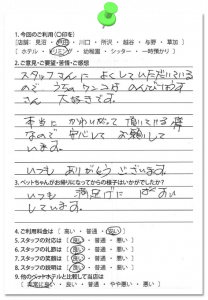 1.今回のご利用(○印を)
[店舗: 見沼 ・ 戸田 ・ 川口 ・ 所沢 ・ 越谷 ・ 与野 ・ 草加 ]
[ ホテル ・ トリミング ・ 幼稚園 ・ シッター ・ 一時預かり ]
2.ご意見・ご要望・苦情・ご感想
スタッフさんに よくしていただいている
ので うちの ワンコは のんびりぼうず
さん 大好きです。
本当に かわいがって 頂いている様
なので 安心して お願いして
います。
いつも ありがとう ございます。
3.ペットちゃんがお帰りになってからの様子はいかがでしたか?
いつも 満足げに
しています。
4.ご利用料金は [ 高い ・ 普通 ・ 安い ]
5.スタッフの対応は [ 良い ・ 普通 ・ 悪い ]
6.スタッフの礼節は [ 良い ・ 普通 ・ 悪い ]
7.スタッフの笑顔は [ 良い ・ 普通 ・ 悪い ]
8.スタッフの説明は [ 良い ・ 普通 ・ 悪い ]
9.他のペットホテルと比較して当店は
[ 非常に良い ・ 良い ・ 普通 ・ やや悪い ・ 悪い ]